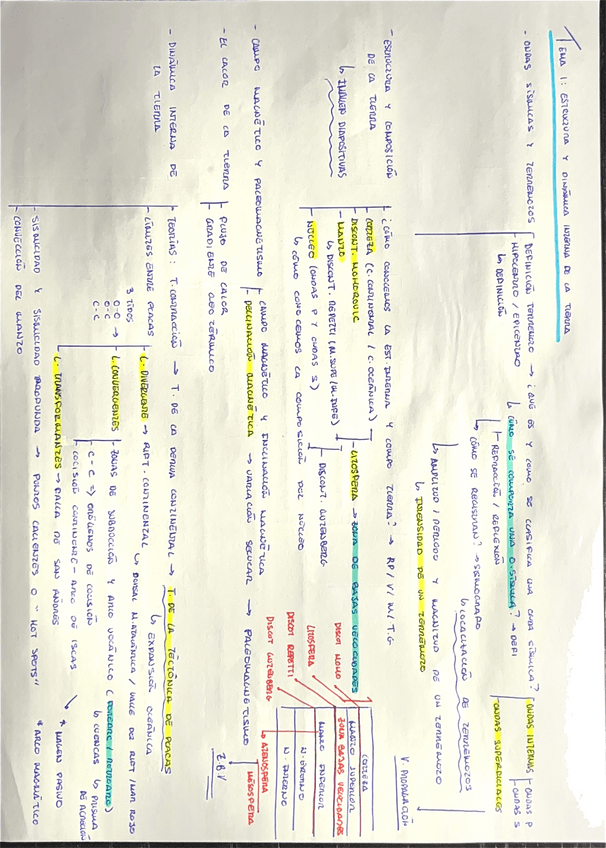 TEMA 1: ESTRUCTURA Y DINÁMICA INTERNA DE LA TIERRA
- ONDAS SÍSMICAS Y TERREMOTOS
DEFINICIÓN TERREMOTO → ¿QUÉ ES Y CÓMO SE CLASIFICA UNA ONDA SÍSMICA?
ONDAS INTERNAS
ONDAS P
ONDAS S
ONDAS SUPERFICIALES
HIPOCENTRO / EPICENTRO
↳ DEFINICIÓN
↳ CÓMO SE COMPORTA UNA O. SÍSMICA? → DEPI
REFRACCIÓN / REFLEXIÓN
→ CÓMO SE REGISTRAN? → SISMÓGRAFO
↳ LOCALIZACIÓN DE TERREMOTOS
↳ AMPLITUD / PERIODO Y MAGNITUD DE UN TERREMOTO
↳ INTENSIDAD DE UN TERREMOTO
V. PROPAGACIÓN
- ESTRUCTURA Y COMPOSICIÓN
DE LA TIERRA
↳ IMAGEN DIAPOSITIVAS
¿CÓMO CONOCEMOS LA EST. INTERNA Y COMPO TIERRA? → RP / V / M / T.G
- CORTEZA (C. CONTINENTAL / C. OCEÁNICA)
- DISCONT. MOHOROVIC
- LITOSFERA → ZONA DE BAJAS VELOCIDADES
- MANTO
↳ DISCONT. REPETTI (M. SUPE / M. INFE)
DISCONT. GUTENBERG
- NÚCLEO (ONDAS P Y ONDAS S)
↳ CÓMO CONOCEMOS LA COMPOSICIÓN DEL NÚCLEO
CORTEZA
MANTO SUPERIOR
ZONA BAJAS VELOCIDADES
MANTO INFERIOR
N. EXTERNO
N. INTERNO
DISCOT MOHO
LITOSFERA
DISCOT REPETTI
DISCOT GUTENBERG
↳ ASTENOSFERA
MESOSFERA
Z B V
- CAMPO MAGNÉTICO Y PALEOMAGNETISMO
CAMPO MAGNÉTICO Y INCLINACIÓN MAGNÉTICA
DECLINACIÓN MAGNÉTICA → VARIACIÓN SECULAR → PALEOMAGNETISMO
- EL CALOR DE LA TIERRA
FLUJO DE CALOR
GRADIENTE GEOTÉRMICO
- DINÁMICA INTERNA DE
LA TIERRA
TEORÍAS: T. CONTRACCIÓN → T. DE LA DERIVA CONTINENTAL → T. DE LA TECTÓNICA DE PLACAS
↳ EXPANSIÓN OCEÁNICA
- LÍMITES ENTRE PLACAS
L. DIVERGENTE → RIFT. CONTINENTAL
↳ DORSAL M. ATLÁNTICA / VALLE DEL RIFT / MAR ROJO
3 TIPOS
O-O
O-C
C-C
→ L. CONVERGENTES
- ZONAS DE SUBDUCCIÓN Y ARCO VOLCÁNICO
↳ CUENCAS
↳ PRISMA
DE ACRECIÓN
C-C ⇒ ORÓGENOS DE COLISIÓN
COLISIÓN CONTINENTE - ARCO DE ISLAS
* MARGEN PASIVO
* ARCO MAGMÁTICO
L. TRANSFORMANTES → FALLA DE SAN ANDRÉS
- SISMICIDAD Y SISMICIDAD PROFUNDA → PUNTOS CALIENTES O "HOT SPOTS"
- CONVECCIÓN DEL MANTO